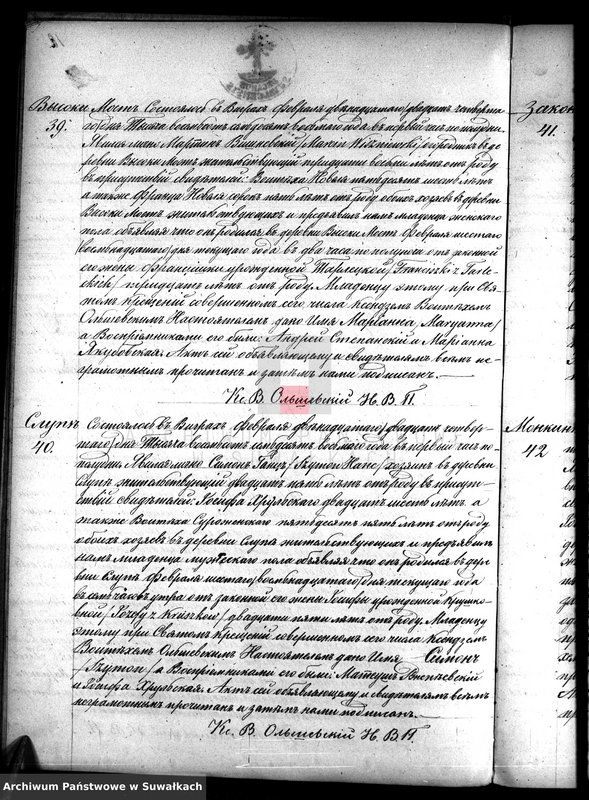 Высоки Мостъ Состоялось въ Виграхъ Февраля двѣнадцатаго/двадцать четверта
39.
го/ дня Тысяча восемьсотъ семдесятъ восьмаго года въ первый часъ по полудни.
Явился мано Марціанъ Вишневскій /Marcin Wiszniewski/ въ де
ревни Высоки Мостъ жительствующій тридцати восьми лѣтъ отъ роду
въ присутствіи свидѣтелей: Войтѣха Новаля пятьдесятъ шесть лѣтъ
а также Франца Новаля сорокъ лѣтъ отъ роду обоихъ хозяевъ въ деревни
Высоки Мостъ жительствующихъ и предъявилъ намъ младенца женскаго
пола объявляя что онъ родился въ деревни Высоки Мостъ Февраля шестаго
/восьмьнадцатаго/ дня текущаго года въ два часа по полуночи отъ законной
его жены Францишки урожденной Тарлецкой /Franciszki z Tarle
ckich/ тридцать лѣтъ отъ роду. Младенцу этому при Свя
томъ Крещеніи совершенномъ сего числа Ксендзомъ Войтѣхомъ
Ольшевскимъ Настоятелемъ дано Имя Маріанна, /Maryanna/
а Воспріемниками его были: Андрей Степанскій и Маріанна
Якубовская. Актъ сей объявляющему и свидѣтелямъ всѣмъ не
грамотнымъ прочитанъ и затѣмъ нами подписанъ.
Кс. В. Ольшевскій Н. В. П.
Слупъ Состоялось въ Виграхъ Февраля двѣнадцатаго/двадцать четвер-
40.
таго/ дня Тысяча восемьсотъ семьдесятъ восьмаго года въ первый часъ по-
полудни. Явился мано Симонъ Гацъ /Szymon Hanc/ хозяинъ въ деревни
Слупъ жительствующій двадцать пять лѣтъ отъ роду въ присут-
ствіи свидѣтелей: Іосифа Хрульскаго двадцать шесть лѣтъ, а
также Войтѣха Суроженскаго пятьдесятъ пять лѣтъ отъ роду
обоихъ хозяевъ въ деревни Слупа жительствующихъ и предъявилъ
намъ младенца мужескаго пола объявляя что онъ родился въ дере
вни Слупъ Февраля шестаго /восьмьнадцатаго/ дня текущаго года
въ семь часовъ утра отъ законной его жены Іосифы урожденной Крушко-
вной, /Józefy z Kruszków/ двадцати пяти лѣтъ отъ роду. Младенцу
этому при Святомъ Крещеніи совершенномъ сего числа Ксендзомъ
Войтѣхомъ Ольшевскимъ Настоятелемъ дано Имя Симонъ
/Szymon/ а Воспріемниками его были: Матеушъ
и Іосифа Хрульская. Актъ сей объявляющему и свидѣтелямъ всѣмъ
неграмотнымъ прочитанъ и затѣмъ нами подписанъ.
Кс. В. Ольшевскій Н. В. П.
Закон
41.
Монкин
42
Archiwum Państwowe w Suwałkach